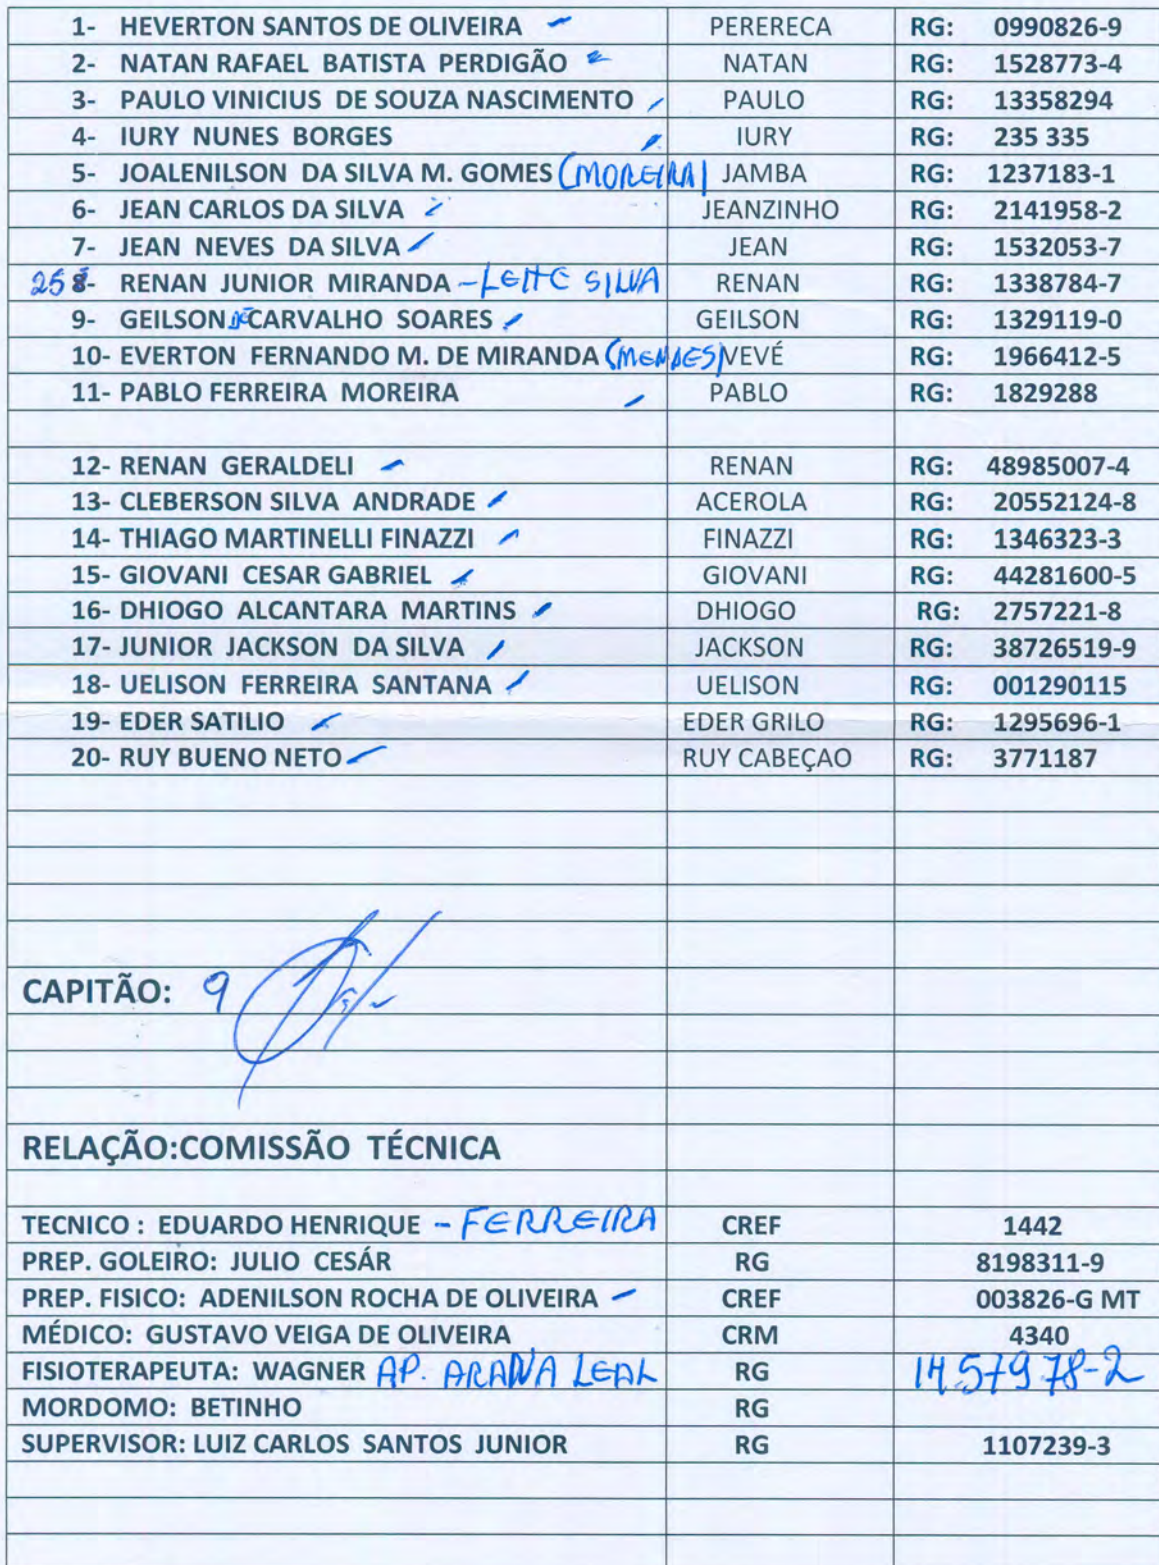 1- HEVERTON SANTOS DE OLIVEIRA PERERECA RG: 0990826-9
2- NATAN RAFAEL BATISTA PERDIGÃO NATAN RG: 1528773-4
3- PAULO VINICIUS DE SOUZA NASCIMENTO PAULO RG: 13358294
4- IURY NUNES BORGES IURY RG: 235 335
5- JOALENILSON DA SILVA M. GOMES (MOREIRA) JAMBA RG: 1237183-1
6- JEAN CARLOS DA SILVA JEANZINHO RG: 2141958-2
7- JEAN NEVES DA SILVA JEAN RG: 1532053-7
25 8- RENAN JUNIOR MIRANDA - LEITE SILVA RENAN RG: 1338784-7
9- GEILSON DE CARVALHO SOARES GEILSON RG: 1329119-0
10- EVERTON FERNANDO M. DE MIRANDA (MENDES) VEVÉ RG: 1966412-5
11- PABLO FERREIRA MOREIRA PABLO RG: 1829288
12- RENAN GERALDELI RENAN RG: 48985007-4
13- CLEBERSON SILVA ANDRADE ACEROLA RG: 20552124-8
14- THIAGO MARTINELLI FINAZZI FINAZZI RG: 1346323-3
15- GIOVANI CESAR GABRIEL GIOVANI RG: 44281600-5
16- DHIOGO ALCANTARA MARTINS DHIOGO RG: 2757221-8
17- JUNIOR JACKSON DA SILVA JACKSON RG: 38726519-9
18- UELISON FERREIRA SANTANA UELISON RG: 001290115
19- EDER SATILIO EDER GRILO RG: 1295696-1
20- RUY BUENO NETO RUY CABEÇAO RG: 3771187
CAPITÃO: 9
RELAÇÃO:COMISSÃO TÉCNICA
TECNICO : EDUARDO HENRIQUE - FERREIRA CREF 1442
PREP. GOLEIRO: JULIO CESÁR RG 8198311-9
PREP. FISICO: ADENILSON ROCHA DE OLIVEIRA CREF 003826-G MT
MÉDICO: GUSTAVO VEIGA DE OLIVEIRA CRM 4340
FISIOTERAPEUTA: WAGNER AP. ARANA LEAL RG 1457978-2
MORDOMO: BETINHO RG
SUPERVISOR: LUIZ CARLOS SANTOS JUNIOR RG 1107239-3